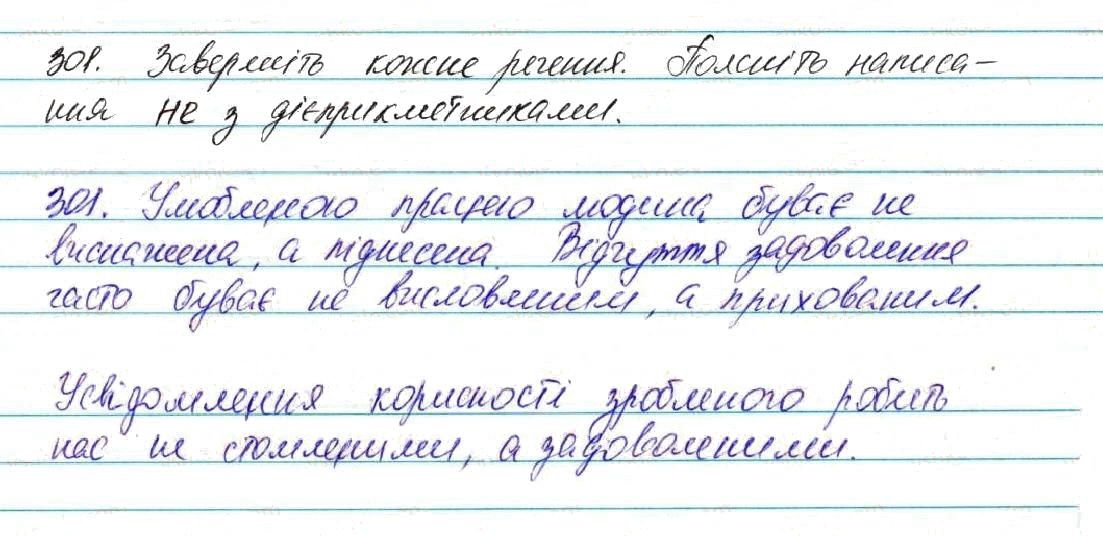 301. Завершіть кожне речення. Поясніть написа-
ння не з дієприкметниками.
301. Улюбленою працею людина буває не
виснажена, а піднесена. Відчуття задоволення
часто буває не висловленим, а прихованим.
Усвідомлення корисності зробленого робить
нас не стомленими, а задоволеними.